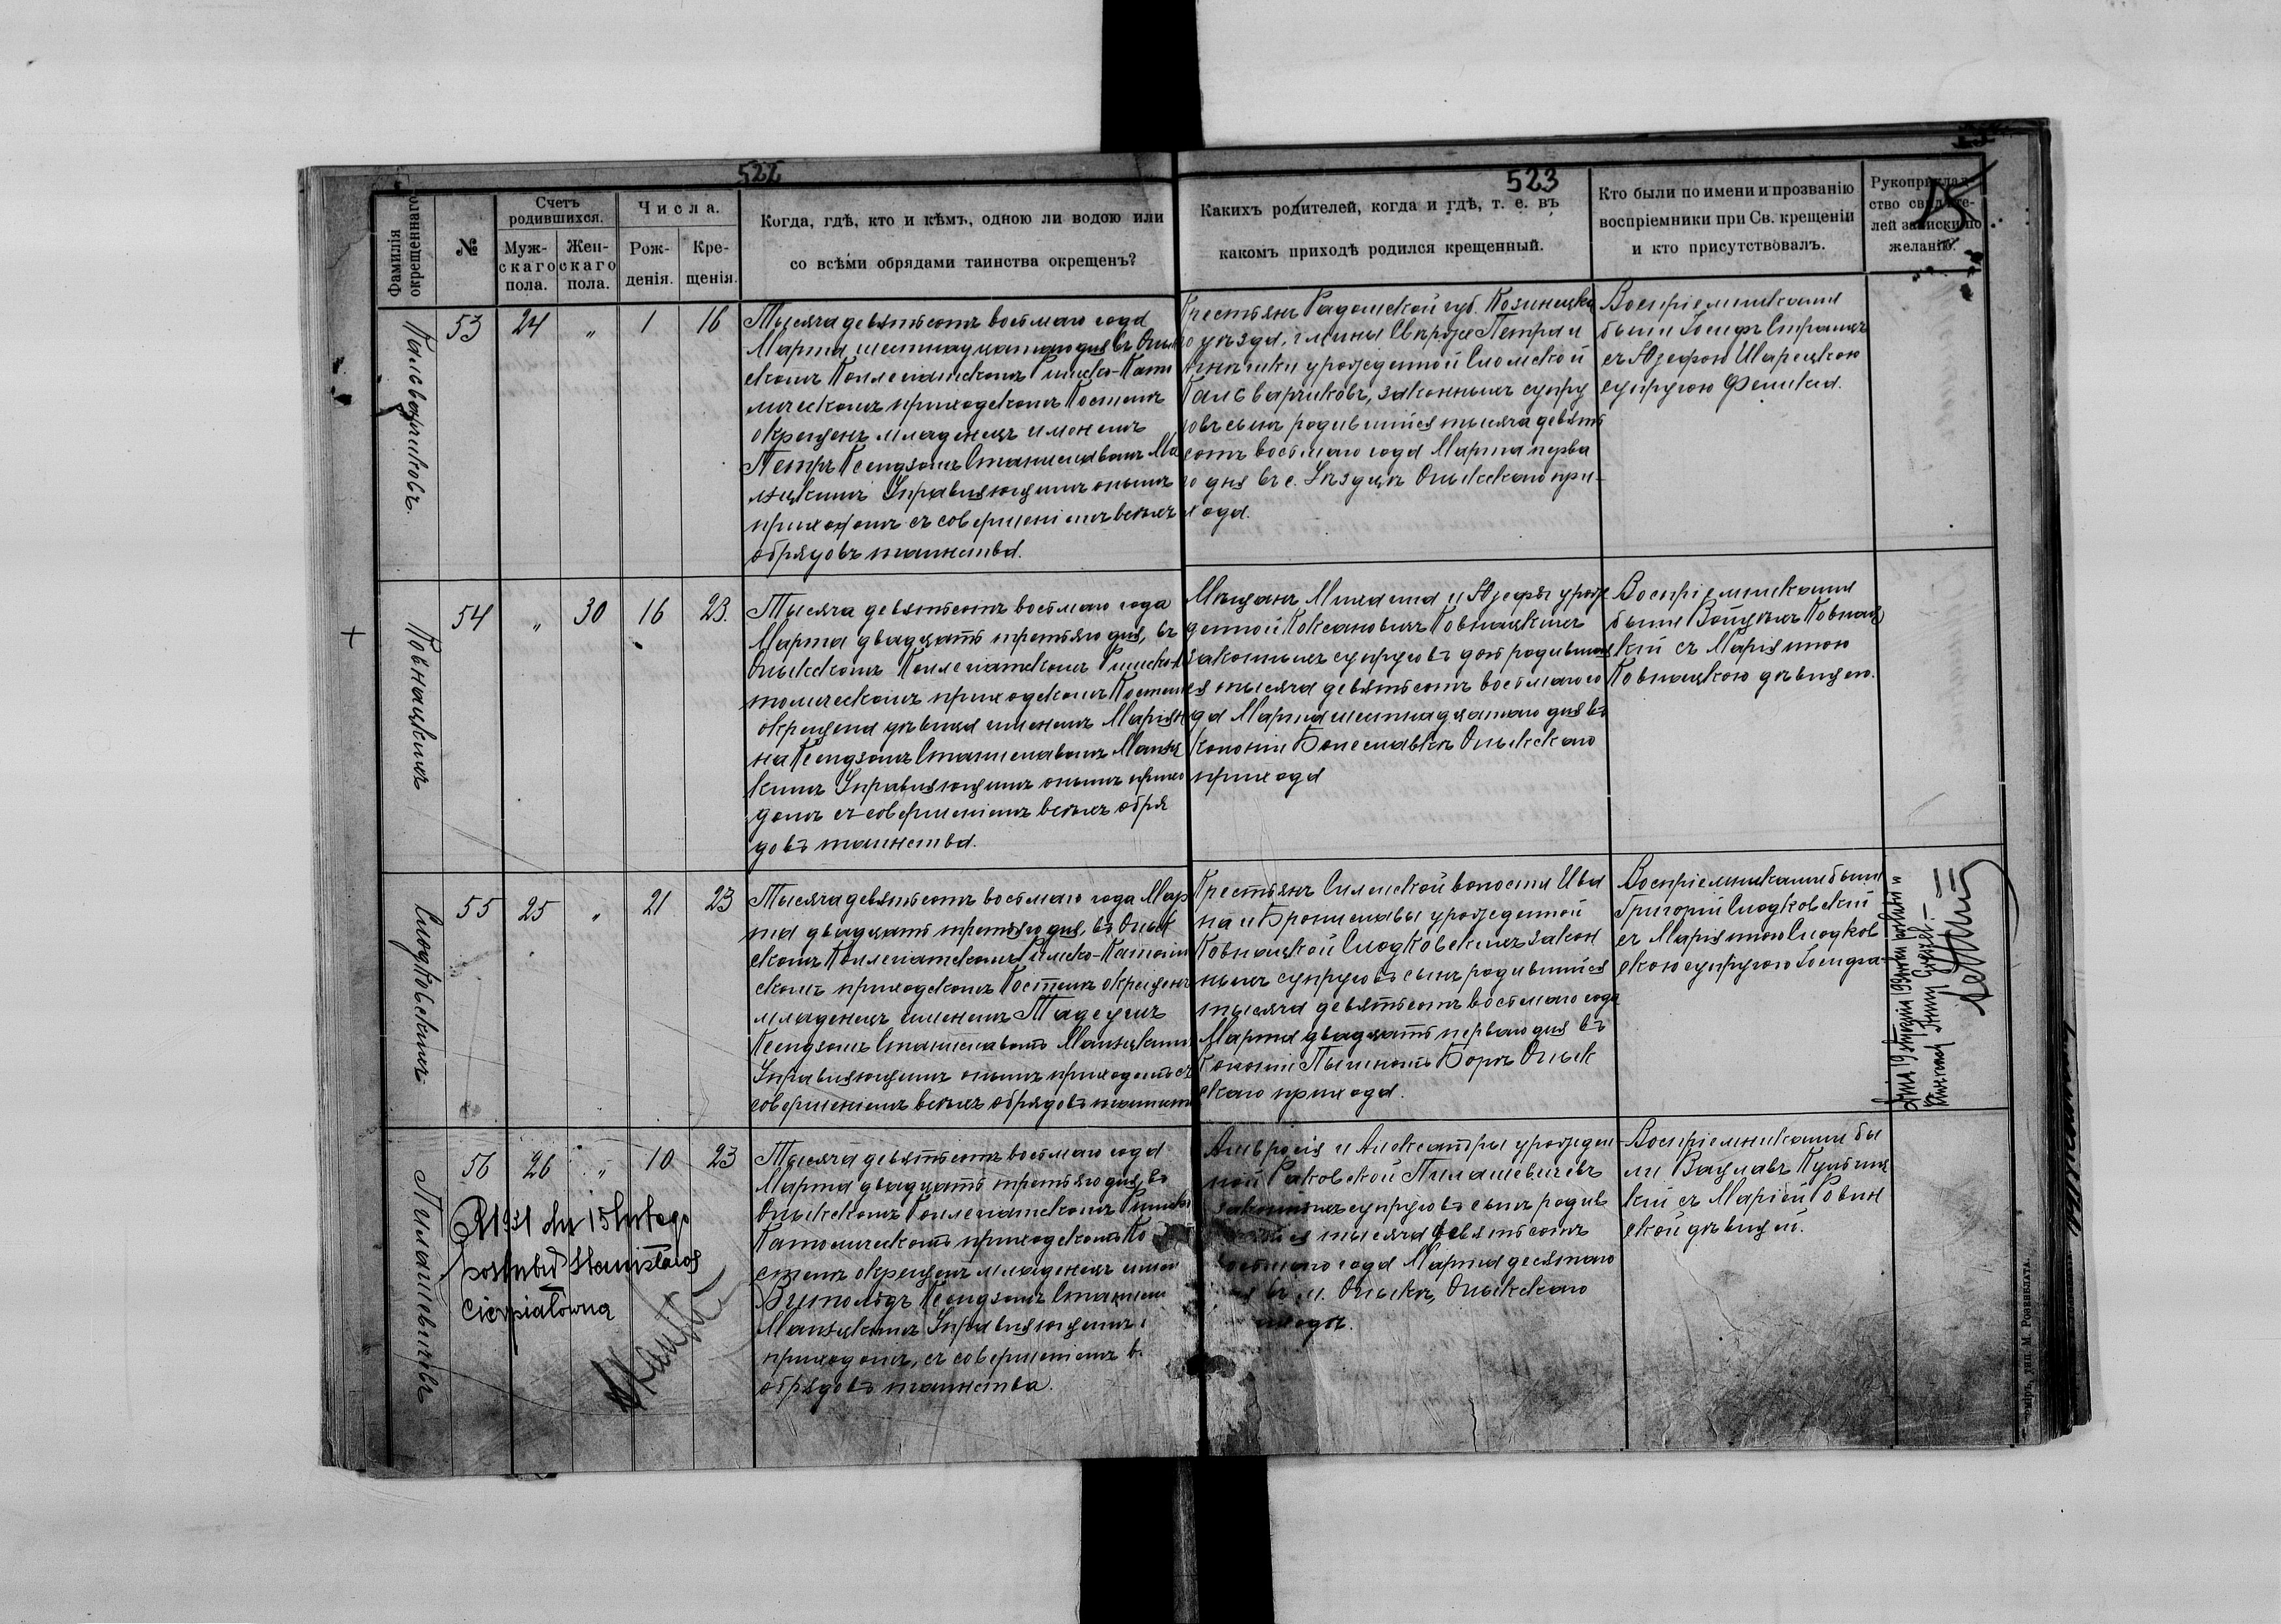 522
Фамилія окрещеннаго
№
Счетъ родившихся.
Муж-
скаго
пола.
Жен-
скаго
пола.
Числа.
Рож-
денія.
Кре-
щенія.
Когда, гдѣ, кто и кѣмъ, одною ли водою или
со всѣми обрядами таинства окрещенъ?
523
Какихъ родителей, когда и гдѣ, т. е. въ
какомъ приходѣ родился крещенный.
Кто были по имени и прозванію
воспріемники при Св. крещеніи
и кто присутствовалъ.
Рукоприклад-
ство свидѣте-
лей записки по
желанію.
Кальварчиковъ.
53
24
"
1
16
Тысяча девятьсотъ восьмаго года
Марта шестнадцатаго дня въ Олык
скомъ Коллегіатскомъ Римско-Като
лическомъ приходскомъ Костелѣ
окрещенъ младенецъ именемъ
Петръ Ксендзомъ Станиславомъ Ма
лѣцкимъ Управляющимъ онымъ
приходомъ съ совершеніемъ всѣхъ
обрядовъ таинства.
Крестьянъ Радомской губ. Козеницка
го уѣзда, гмины Петра и
урожденной
Кальварчиковъ, законныхъ супру
говъ сынъ родившійся тысяча девять
сотъ восьмаго года Марта перва
го дня въ с. Олыкскаго при-
хода.
Воспріемниками
были Іосифъ
съ Юзефою
супругою Феликса.
Ковнацкихъ
54
"
30
16
23.
Тысяча девятьсотъ восьмаго года
Марта двадцать третьяго дня, въ
Олыкскомъ Коллегіатскомъ Римско-Ка
толическомъ приходскомъ Костелѣ
окрещена дѣвица именемъ Маріян
на Ксендзомъ Станиславомъ Малѣц
кимъ Управляющимъ онымъ прихо
домъ съ совершеніемъ всѣхъ обря
довъ таинства.
Мѣщанъ Михаила и Юзефы урож
денной Коксановичъ Ковнацкихъ
законныхъ супруговъ дочь родивша
яся тысяча девятьсотъ восьмаго го
да Марта шестнадцатаго дня въ
колоніи Болеславкѣ Олыкскаго
прихода
Воспріемниками
были Войцехъ Ковнац
кій съ Маріянною
Ковнацкою дѣвицею.
Слодковскихъ
55
25
"
21
23
Тысяча девятьсотъ восьмаго года Мар
та двадцать третьяго дня, въ Олык
скомъ Коллегіатскомъ Римско-Католич
скомъ приходскомъ Костелѣ окрещенъ
младенецъ именемъ Тадеушъ
Ксендзомъ Станиславомъ Малѣцкимъ
Управляющимъ онымъ приходомъ съ
совершеніемъ всѣхъ обрядовъ таинства
Крестьянъ Силенской волости Ива
на и Брониславы урожденной
Ковнацкой Слодковскихъ закон
ныхъ супруговъ сынъ родившійся
тысяча девятьсотъ восьмаго года
Марта двадцать перваго дня въ
Колоніи Боръ Олык
скаго прихода.
Воспріемниками были
Григорій Слодковскій
съ Маріянною Слодков
скою супругою Іосифа.
Dnia 19 stycznia
Пилашевичъ
56
26
"
10
23
R 1931 dn 15 lutego
poślubił Stanisławę
Тысяча девятьсотъ восьмаго года
Марта двадцать третьяго дня, въ
Олыкскомъ Коллегіатскомъ Римско
Католическомъ приходскомъ Ко
стелѣ окрещенъ младенецъ имен
Витольдъ Ксендзомъ Станисл
Малѣцкимъ Управляющимъ
приходомъ, съ совершеніемъ в
обрядовъ таинства.
Амвросія и Александры урожден
ной Раковской Пилашевичевъ
законныхъ супруговъ сынъ родив
шійся тысяча девятьсотъ
восьмаго года Марта десятаго
дня въ м. Олыкѣ, Олыкскаго
прихода.
Воспріемниками бы
ли Вацлавъ
кій съ Маріей Ровин
ской дѣвицей.
тип. М. Розенблата.